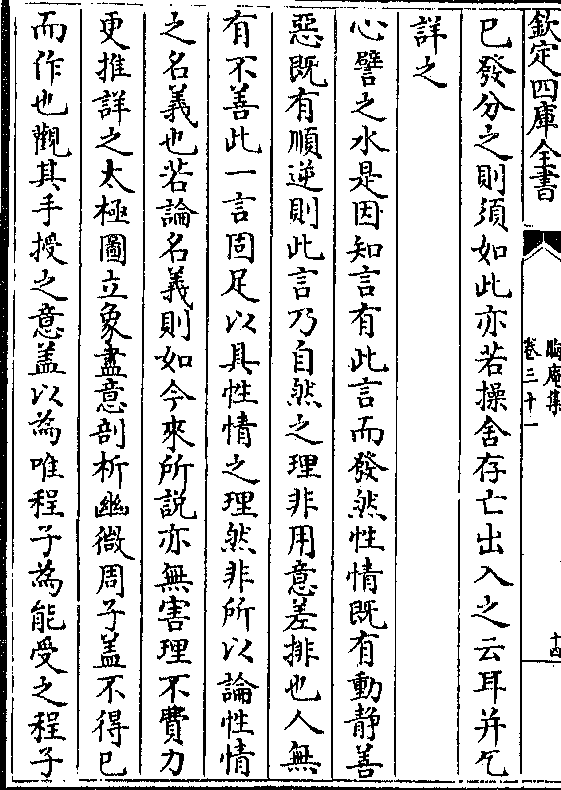 欽定四庫全書
晦庵集
卷三十一
十四
已發分之則須如此亦若操舍存亡出入之云耳并乞
詳之
心譬之水是因知言有此言而發然性情既有動靜善
惡既有順逆則此言乃自然之理非用意差排也人無
有不善此一言固足以具性情之理然非所以論性情
之名義也若論名義則如今來所説亦無害理不費力
更推詳之太極圖立象盡意剖析幽微周子蓋不得已
而作也觀其手授之意蓋以為唯程子為能受之程子